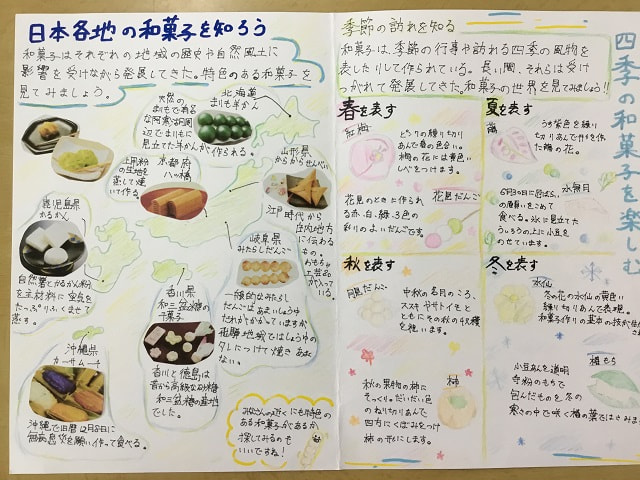 日本各地の和菓子を知ろう
和菓子はそれぞれの地域の歴史や自然風土に
影響を受けながら発展してきた。特色のある和菓子を
見てみましょう。
北海道
まりも羊かん
天然の
まりもで有名
な阿寒湖周
辺でまりもに
見立てた羊かんが作られる。
山形県
からからせんべい
江戸時代から
庄内地方
に伝わる
もの。
おもちゃや
工芸品
が入って
いる。
京都府
八ッ橋
上用粉
の生地を
蒸して焼
いて作る。
鹿児島県
かるかん
自然薯とかるかん粉
を主材料に空気を
たっぷりふくませて
蒸す。
岐阜県
みたらしだんご
一般的なみたらし
だんごは あまいしょうゆ
だれがかかっていますが
飛騨地域ではしょうゆの
タレにつけて焼き あまく
ない。
香川県
和三盆糖の
干菓子
香川と徳島は
昔から高級な砂糖
和三盆糖の産地
でした。
沖縄県
カーサムーチー
沖縄で旧暦12月8日に
無病息災を願い作って食べる。
みなさんの近くにも特色の
ある和菓子があるか
探してみるのも
いいですね!
四季の和菓子を楽しむ
季節の訪れを知る
和菓子は、季節の行事や訪れる四季の風物を
表したりして作られている。長い間、それらは受け
つがれて発展してきた。和菓子の世界を見てみましょう!!
春を表す
紅梅
とろりの練り切り
あんで春の色合い。
梅の花には黄色い
しべをつけます。
花見だんご
花見のときに作られ
る赤、白、緑、3色の
彩りのよいだんごです。
夏を表す
うす紫色を練り
切りあんで作った
の花。
水無月
6月30日に厄ばらい、
の願いをこめて
食べる。氷に見立てた
ういろうの上に小豆を
のせています。
秋を表す
月見だんご
中秋の名月のころ、
ススキやサトイモと
ともにその秋の収穫
を祝います。
柿
秋の果物の柿に
そっくり。だいだい色
のねり切りあんで
四方にくぼみをつけ
柿の形にします。
冬を表す
水仙
冬の花の水仙の黄色い
練り切りあんで表現。
和菓子作りの基本の技が
椿もち
小豆あんを道明
寺粉のもちで
包んだものを冬の
寒さの中で咲く椿の葉ではさみます